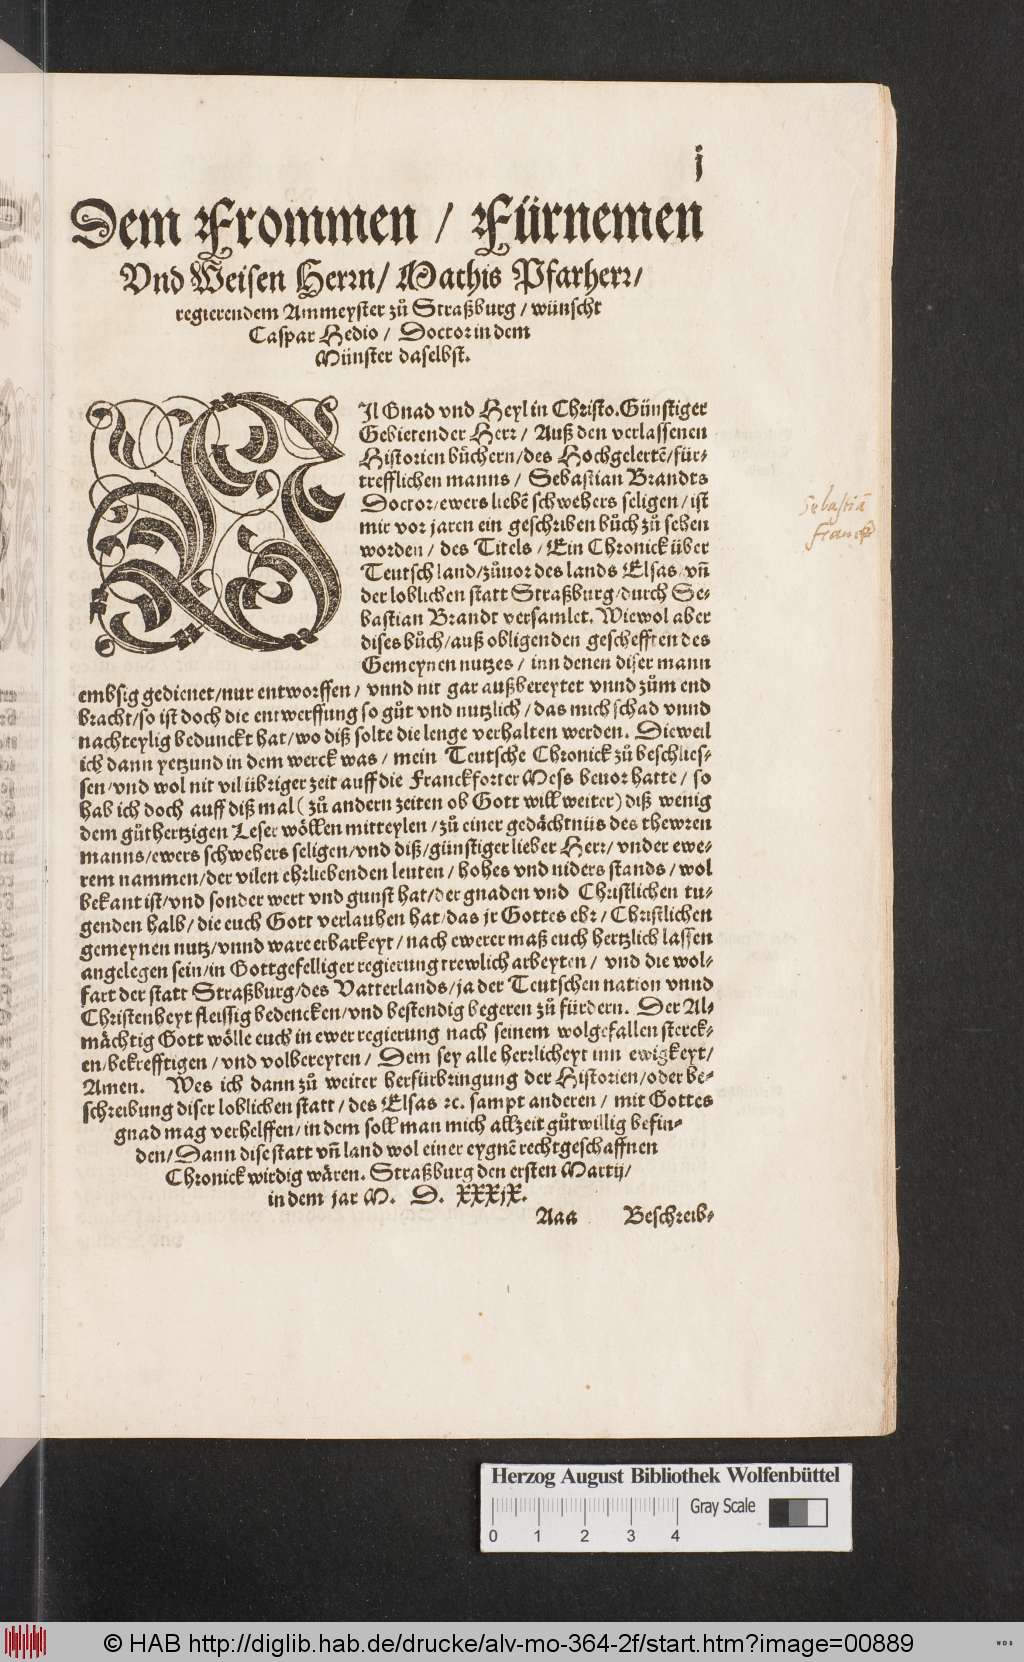 j
Dem Frommen / Fürnemen
Vnd Weisen Herrn / Mathis Pfarherr /
regierendem Ammeyster zů Straßburg / wünscht
Caspar Hedio / Doctor in dem
Münster daselbst.
VIl Gnad vnd Heyl in Christo. Günstiger
Gebietender Herr / Auß den verlassenen
Historien bůchern / des Hochgelertē / für-
trefflichen manns / Sebastian Brandts
Doctor / ewers liebē schwehers seligen / ist
mir vor jaren ein geschriben bůch zů sehen
worden / des Titels / Ein Chronick über
Teutsch land / zůuor des lands Elsas / vn̄
der loblichen statt Straßburg / durch Se-
bastian Brandt versamlet. Wiewol aber
dises bůch / auß obligenden geschefften des
Gemeynen nutzes / inn denen diser mann
embsig gedienet / nur entworffen / vnnd nit gar außbereytet vnnd zům end
bracht / so ist doch die entwerffung so gůt vnd nutzlich / das mich schad vnnd
nachteylig bedunckt hat / wo diß solte die lenge verhalten werden. Dieweil
ich dann yetzund in dem werck was / mein Teutsche Chronick zů beschlies-
sen / vnd wol nit vil übriger zeit auff die Franckforter Mess beuor hatte / so
hab ich doch auff diß mal ( zů andern zeiten ob Gott will weiter ) diß wenig
dem gůthertzigen Leser wöllen mitteylen / zů einer gedächtnüs des thewren
manns / ewers schwehers seligen / vnd diß / günstiger lieber Herr / vnder ewe-
rem nammen / der vilen ehrliebenden leuten / hohes vnd niders stands / wol
bekant ist / vnd sonder wert vnd gunst hat / der gnaden vnd Christlichen tu-
genden halb / die euch Gott verlauhen hat / das jr Gottes ehr / Christlichen
gemeynen nutz / vnnd ware erbarkeyt / nach ewerer maß euch hertzlich lassen
angelegen sein / in Gottgefelliger regierung trewlich arbeyten / vnd die wol-
fart der statt Straßburg / des Vatterlands / ja der Teutschen nation vnnd
Christenheyt fleissig bedencken / vnd bestendig begeren zů fürdern. Der Al-
mächtig Gott wölle euch in ewer regierung nach seinem wolgefallen sterck-
en / bekrefftigen / vnd volbereyten / Dem sey alle herrlicheyt inn ewigkeyt /
Amen. Wes ich dann zů weiter herfürbringung der Historien / oder be-
schreibung diser loblichen statt / des Elsas ꝛc. sampt anderen / mit Gottes
gnad mag verhelffen / in dem soll man mich allzeit gůtwillig befin-
den / Dann dise statt vn̄ land wol einer eygnē rechtgeschaffnen
Chronick wirdig wären. Straßburg den ersten Martij /
in dem jar M. D. XXXjX.
Aaa Beschreib-
Sebastiā
Franck
Herzog August Bibliothek Wolfenbüttel
Gray Scale
0 1 2 3 4
© HAB http://diglib.hab.de/drucke/alv-mo-364-2f/start.htm?image=00889